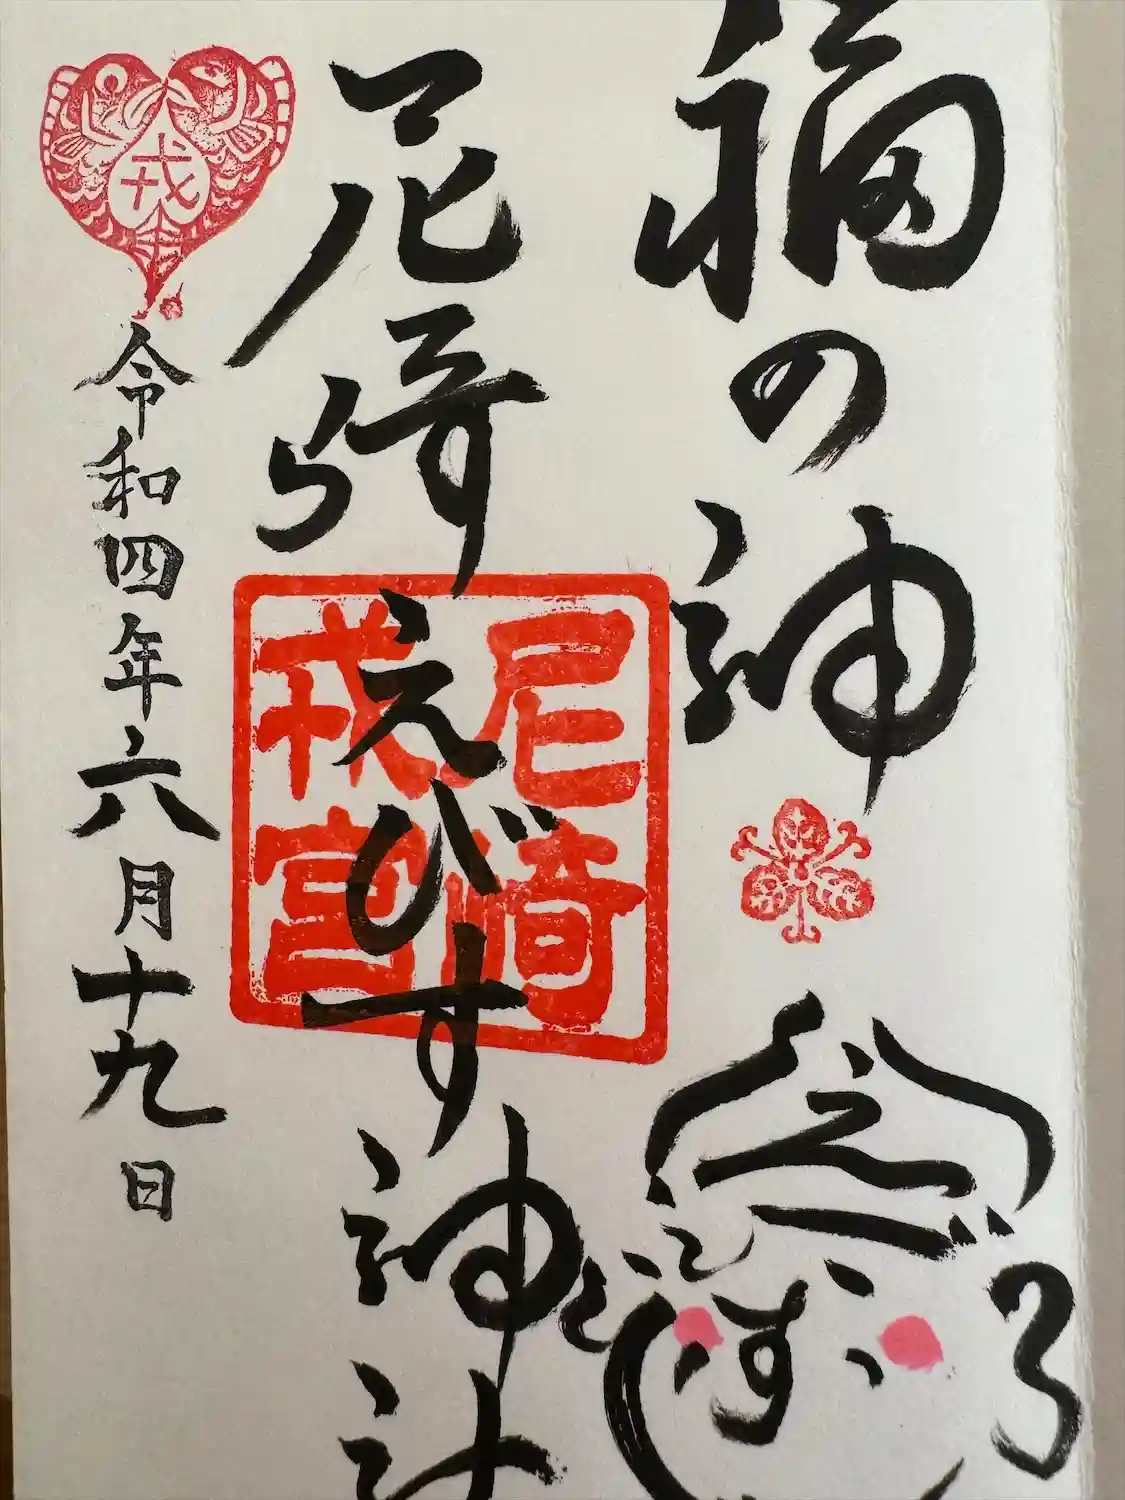 福の神
えびす
尼崎えびす神社
尼崎
戎宮
戎
令和四年六月十九日